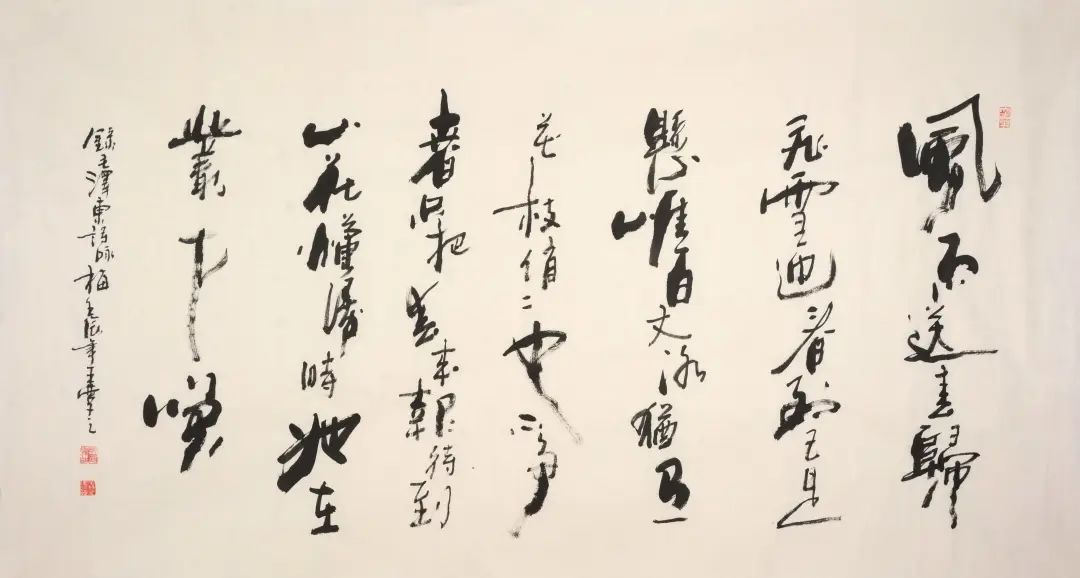 風雨送春歸
飛雪迎春到已是
懸崖百丈冰猶有
花枝俏〻也不爭
春只把春来報待到
山花爛漫時她在
叢中笑
錄毛澤東詞咏梅 辰年